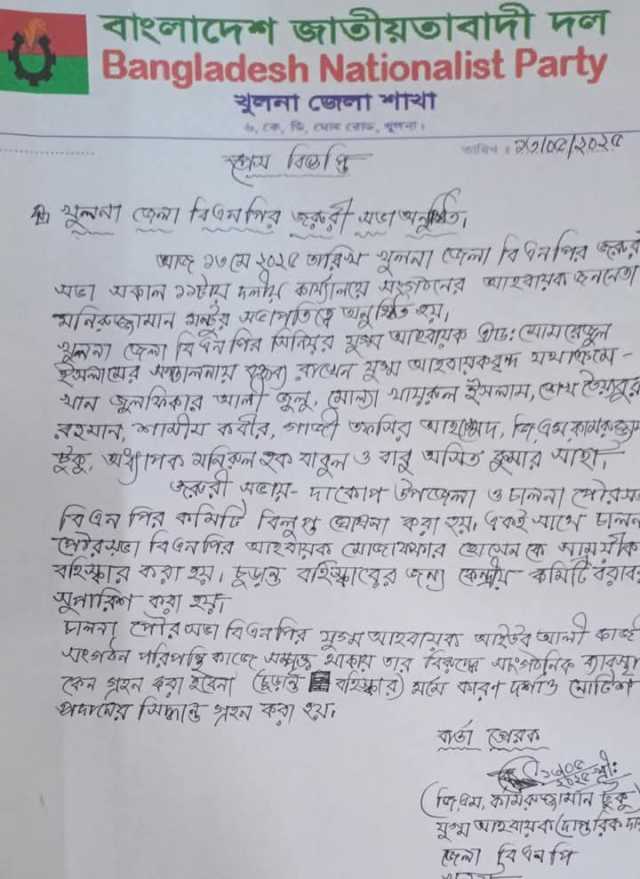 বাংলাদেশ জাতীয়তাবাদী দল
Bangladesh Nationalist Party
খুলনা জেলা শাখা
৬, কে, ডি, ঘোষ রোড, খুলনা।
তারিখ : ১৩/০৫/২০২৫
প্রেস বিজ্ঞপ্তি
খুলনা জেলা বিএনপির জরুরী সভা অনুষ্ঠিত।
আজ ১৩ মে ২০২৫ তারিখ খুলনা জেলা বিএনপির জরুরী
সভা সকাল ১১টায় দলীয় কার্যালয়ে সংগঠনের আহবায়ক জননেতা
মনিরুজ্জামান মন্টুর সভাপতিত্বে অনুষ্ঠিত হয়।
খুলনা জেলা বিএনপির সিনিয়র যুগ্ম আহবায়ক এ্যাড: মোমরেজুল
ইসলামের সঞ্চালনায় বক্তব্য রাখেন যুগ্ম আহবায়কবৃন্দ যথাক্রমে -
খান জুলফিকার আলী জুলু, মোল্যা খায়রুল ইসলাম, শেখ তৈয়বুর
রহমান, শামীম কবীর, গাজী তফসির আহম্মেদ, জি,এম,কামরুজ্জামান
টুকু, অধ্যাপক মনিরুল হক বাবুল ও বাবু অসিত কুমার সাহা।
জরুরী সভায়- দাকোপ উপজেলা ও চালনা পৌরসভা
বিএনপির কমিটি বিলুপ্ত ঘোষনা করা হয়। একই সাথে চালনা
পৌরসভা বিএনপির আহবায়ক মোজাফফার হোসেন কে সাময়ীক
বহিস্কার করা হয়। চুড়ান্ত বহিস্কারের জন্য কেন্দ্রীয় কমিটি বরাবর
সুপারিশ করা হয়।
চালনা পৌরসভা বিএনপির যুগ্ম আহবায়ক আইউব আলী কাজী
সংগঠন পরিপন্থি কাজে সম্পৃক্ত থাকায় তার বিরুদ্ধে সাংগঠনিক ব্যবস্থা
কেন গ্রহন করা হবেনা (চুড়ান্ত বহিস্কার) মর্মে কারণ দর্শাও নোটিশ
প্রদানের সিদ্ধান্ত গ্রহন করা হয়।
বার্তা প্রেরক
(জি,এম, কামরুজ্জামান টুকু)
যুগ্ম আহবায়ক (দাপ্তরিক
জেলা বিএনপি